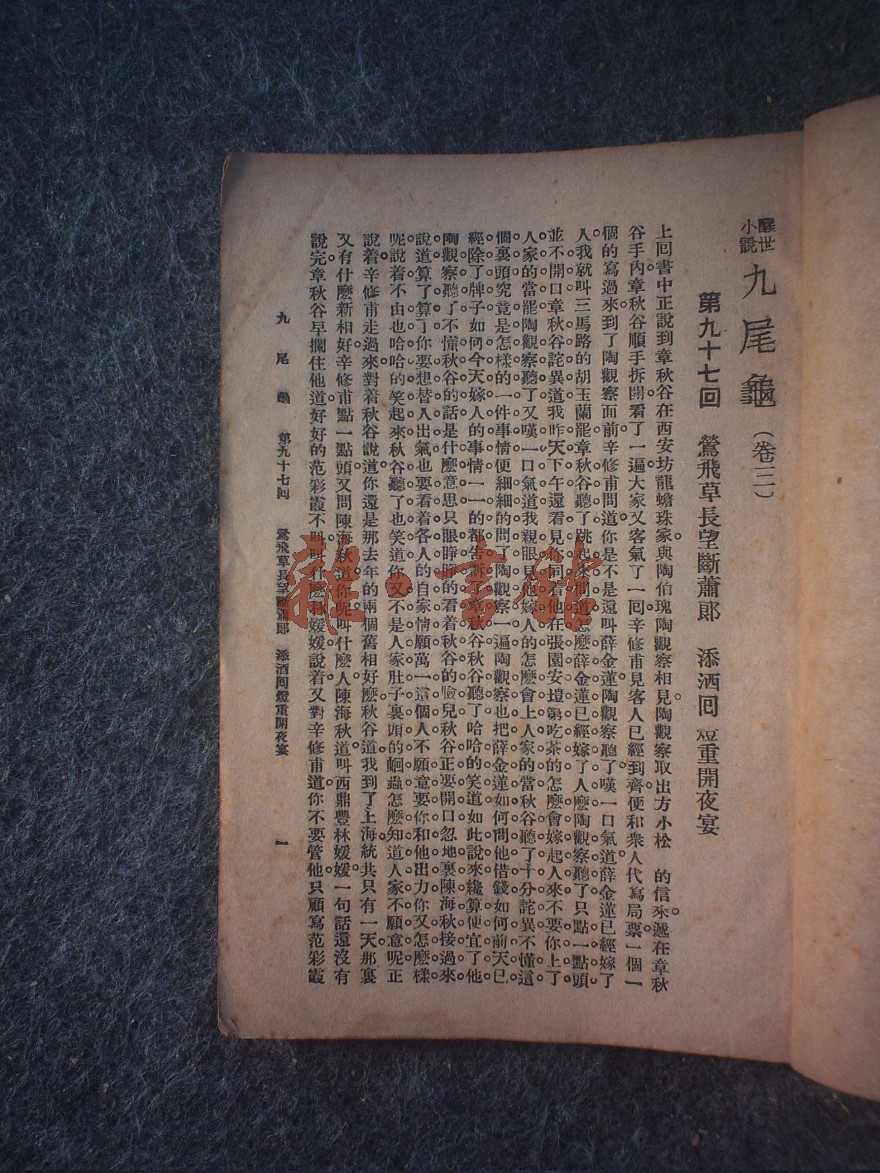 醒世小說 九尾龜 (卷三)
第九十七回 鶯飛草長望斷蕭郎 添酒回燈重開夜宴
上回書中正說到章秋谷在西安坊龍蟾珠家與陶伯瑰陶觀察相見。陶觀察取出方小松 的信來。遞在章秋
谷手內。章秋谷順手拆開看了一遍。大家又客氣了一回。辛修甫見客人已經到齊。便和衆人代寫局票。一個一
個的寫過來。到了陶觀察面前。辛修甫問道。你是不是還叫薛金蓮。陶觀察聽了。嘆一口氣道。薛金蓮已經嫁了
人。我就叫三馬路的胡玉蘭罷。章秋谷聽了。跳起來問道。怎麽薛金蓮已經嫁了人麽。陶觀察聽了。只點一點頭。
並不開口。章秋谷詫異道。我昨天下午還看見 同着他在張園安塏第吃茶的。怎麽會嫁起人來。不要你上了
人家的當罷。陶觀察聽了。又嘆一口氣道。我親眼見他嫁人的。怎麽會上人家的當。秋谷聽了。十分詫異。不懂這
個裏頭究竟是怎樣的一件事情。便細細的問了陶觀察一遍。陶觀察也把薛金蓮如何問他借錢。如何前天已
經除了牌子。如何今天嫁人的事情。一一的都告訴 章秋谷。秋谷聽了哈哈的笑道。如此說來。纔算便宜了他。
陶觀察聽了。不懂秋谷的話是什麽意思。只眼睜睜的看着秋谷的臉兒。秋谷正要開口。忽地裏陳海秋接過來
說道。算了算了。你要想替人出氣。也要看着各人的自家情願。萬一這個人不願意要你和他出力。你又怎麽樣
呢。說着不由也哈哈的笑起來。秋谷聽了也笑道。你又不是人家肚子裏頭的蛔蟲。怎麽知道人家不願意呢。正
說着。辛修甫走過來。對着秋谷說道。你還是那去年的兩個舊相好麽。秋谷道。我到了上海。統共只有一天。那裏
又有什麽新相好。辛修甫點一點頭。又問陳海秋道。你呢。叫什麽人。陳海秋道。叫西鼎豐林媛媛。一句話還沒有
說完。章秋谷早攔住他道。好好的范彩霞不叫。叫什麽林媛媛。說着又對辛修甫道。你不要管他。只顧寫范彩霞
九尾龜 第九十七回 鶯飛草長望斷蕭郎 添酒回燈重開夜宴 一
龍書館